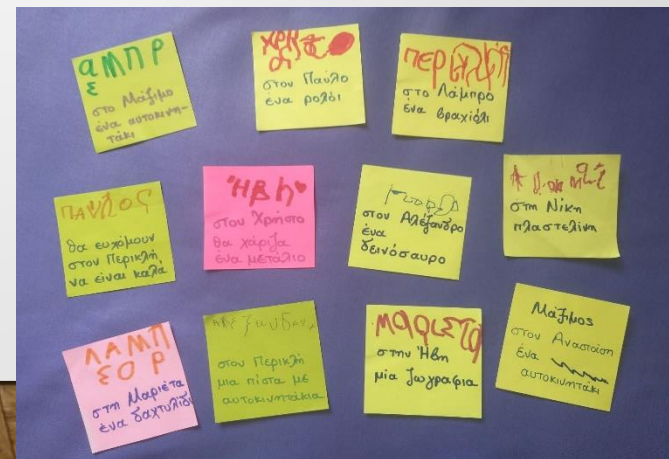 αΜΠΡ
Σ
στο Μάξιμο
ένα αυτοκινη-
τάκι
στον Παύλο
ένα ρολόι
ΠΕΡΙΚΛΗ
στο Λάμπρο
ένα βραχιόλι
ΠΑΥΛΟΣ
θα ευχόμουν
στον Περικλή,
να είναι καλά
ΉΒΗ
στον Χρήστο
θα χάριζα
ένα μετάλιο
στον Αλέξανδρο
ένα
δεινόσαυρο
στη Νίκη
πλαστελίνη
ΛΑΜΠ
ΣΟΡ
στη Μαριέτα
ένα δαχτυλίδι
στον Περικλή
μια πίστα με
αυτοκινητάκια
ΜΑΡΙΕΤΑ
στην Ήβη
μία ζωγραφια
Μάξιμος
στον Αναστάση
ένα
αυτοκινητάκι